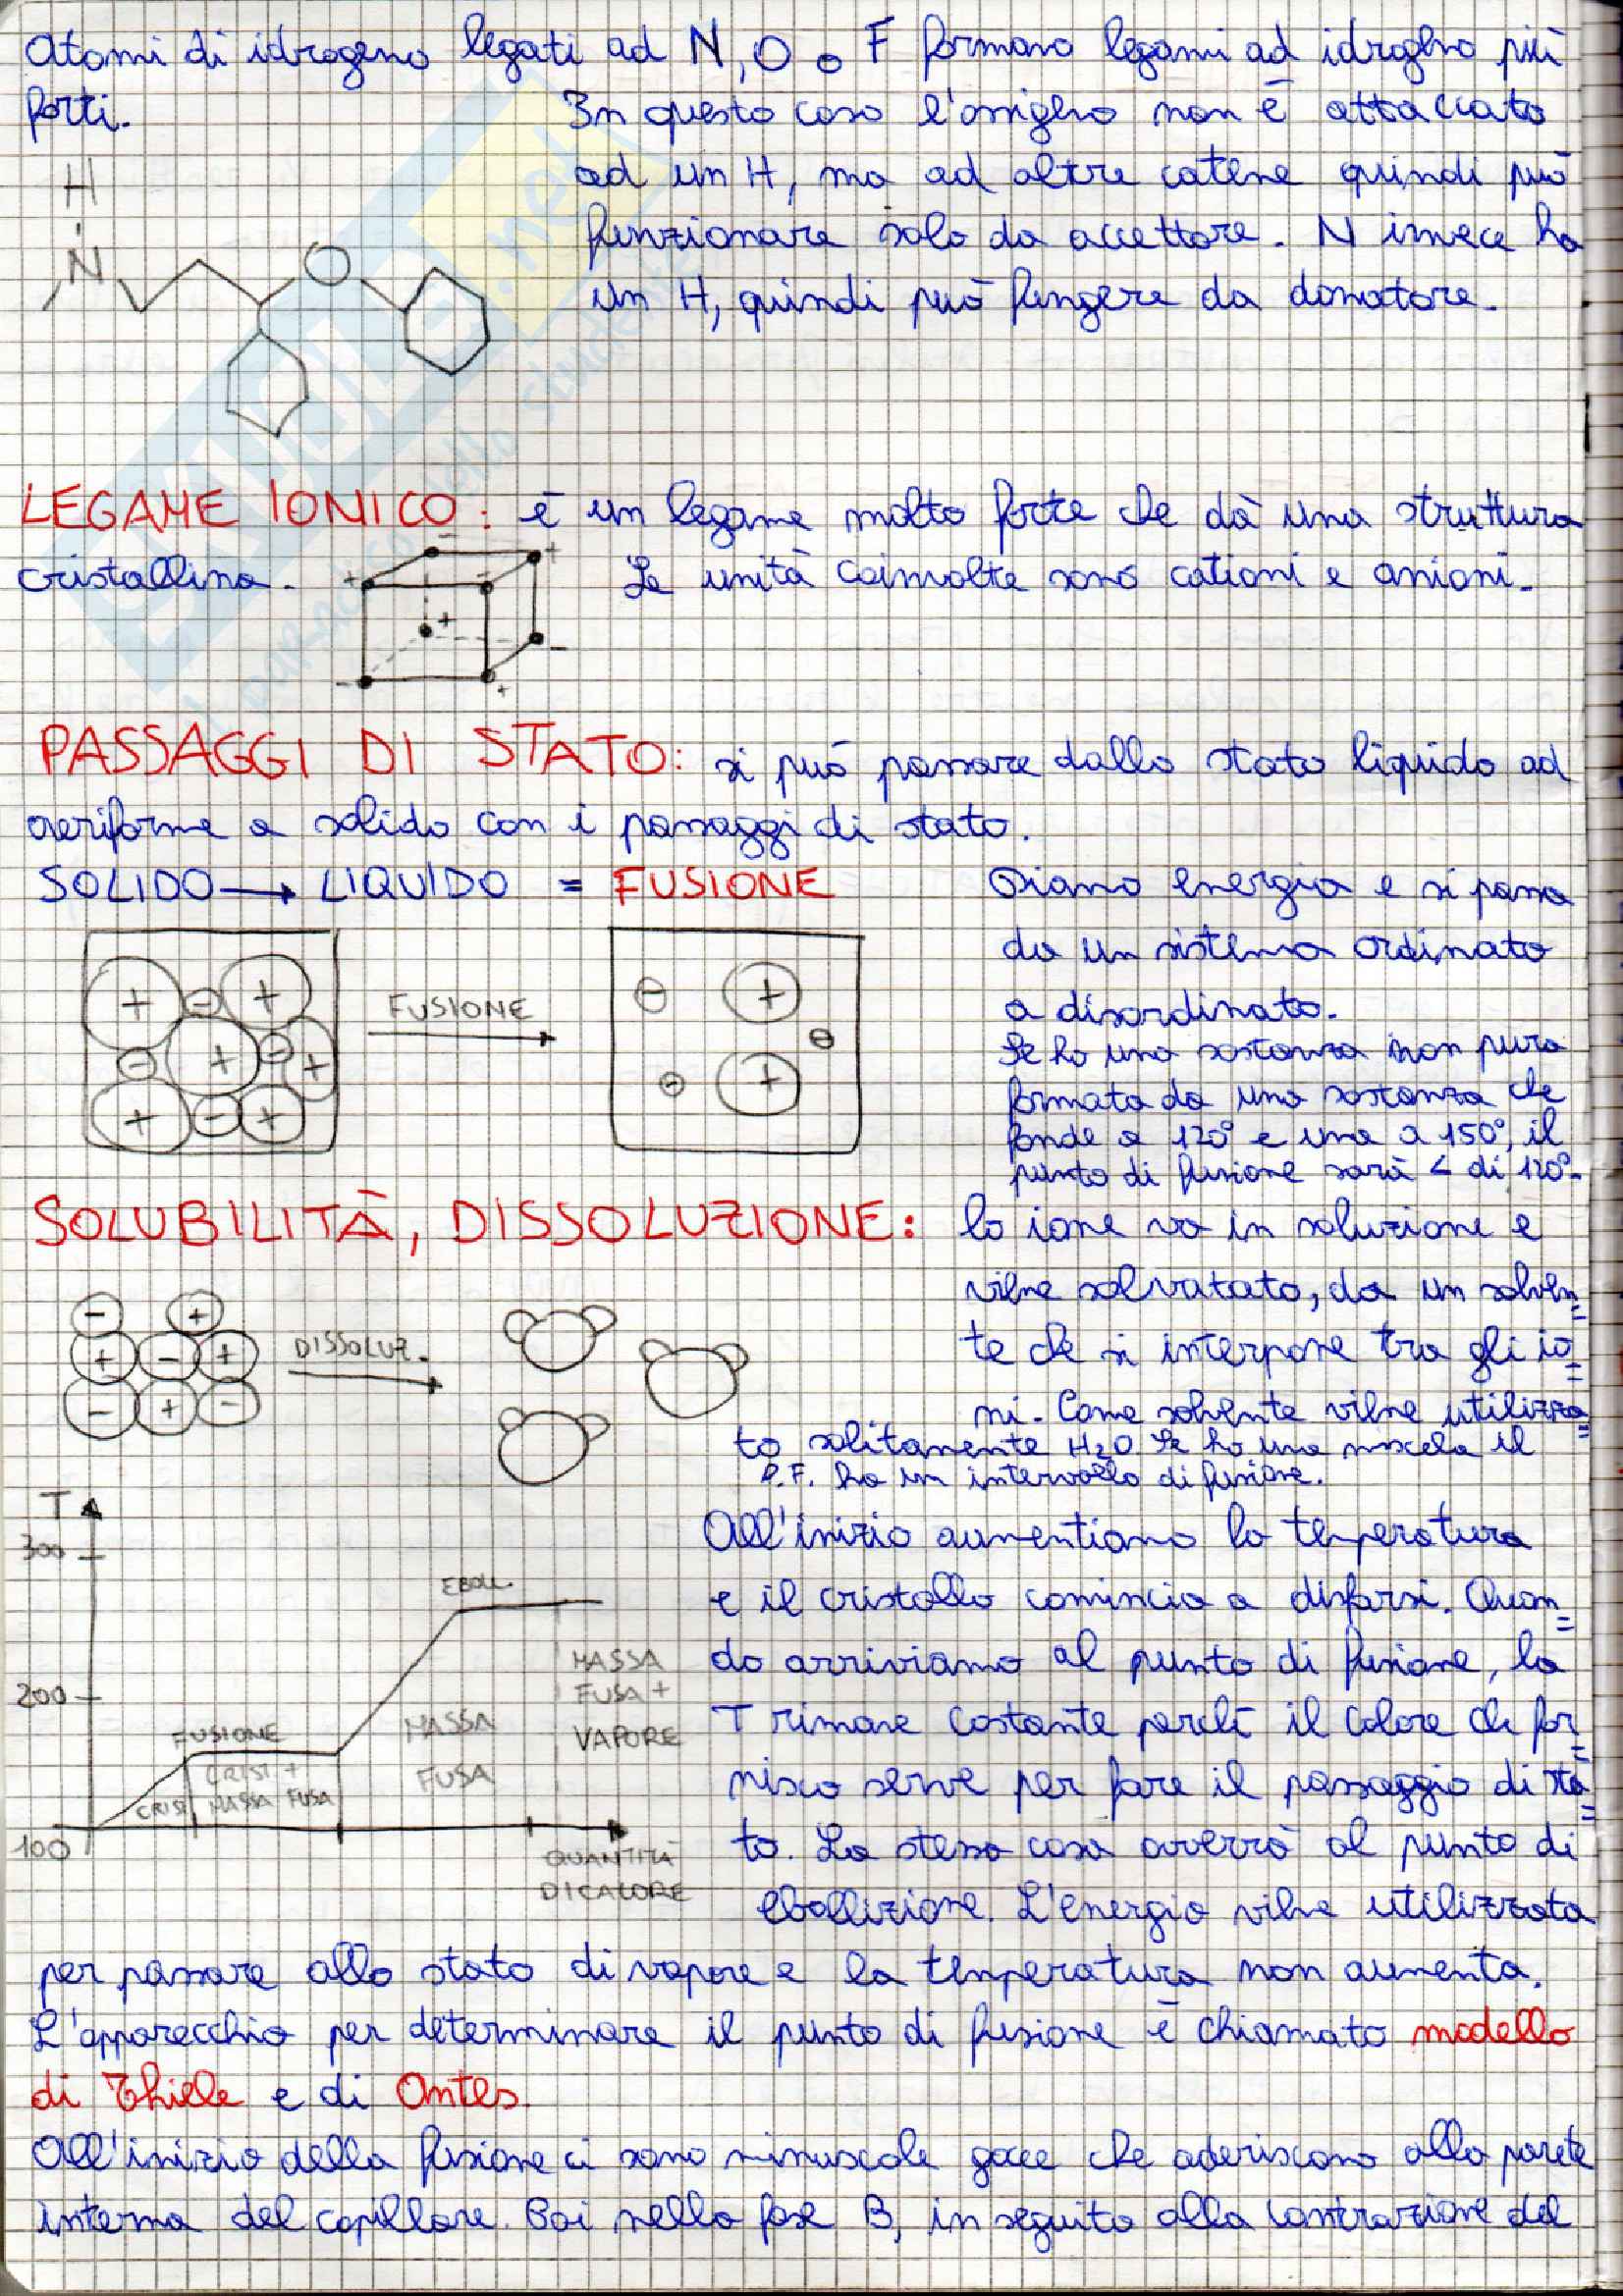 Atomi di idrogeno legati ad N, O o F formano legami ad idrogeno più
forti.
In questo caso l'ossigeno non è attaccato
ad un H, ma ad altre catene quindi può
funzionare solo da accettore. N invece ha
un H, quindi può fungere da donatore.
H
N
O
LEGAME IONICO: è un legame molto forte che dà una struttura
cristallina. Le unità coinvolte sono cationi e anioni.
+ - +
- + -
- +
PASSAGGI DI STATO: si può passare dallo stato liquido ad
aeriforme a solido con i passaggi di stato.
SOLIDO → LIQUIDO = FUSIONE
Diamo energia e si passa
da un sistema ordinato
a disordinato.
Se ho una sostanza non pura
formata da una sostanza che
fonde a 120° e una a 150°, il
punto di fusione sarà < di 120°.
+ - +
- + - +
+ - +
FUSIONE
- +
-
- +
SOLUBILITÀ, DISSOLUZIONE: lo ione va in soluzione e
viene solvatato, da un solven=
te che si interpone tra gli io=
ni. Come solvente viene utilizza=
to solitamente H2O. Se ho una miscela il
P.F. ha un intervallo di fusione.
- +
+ - +
- + -
DISSOLUZ.
T
300
200
100
EBOLL.
FUSIONE
CRIST
CRIST +
MASSA FUSA
MASSA
FUSA
MASSA
FUSA +
VAPORE
QUANTITÀ
DI CALORE
All'inizio aumentiamo la temperatura
e il cristallo comincia a disfarsi. Quan=
do arriviamo al punto di fusione, la
T rimane costante perchè il calore che for=
nisco serve per fare il passaggio di sta=
to. La stessa cosa avverrà al punto di
ebollizione. L'energia viene utilizzata
per passare allo stato di vapore e la temperatura non aumenta.
L'apparecchio per determinare il punto di fusione è chiamato modello
di Thiele e di Ontes.
All'inizio della fusione ci sono minuscole gocce che aderiscono alla parete
interna del capillare. Poi nella fase B, in seguito alla contrazione del